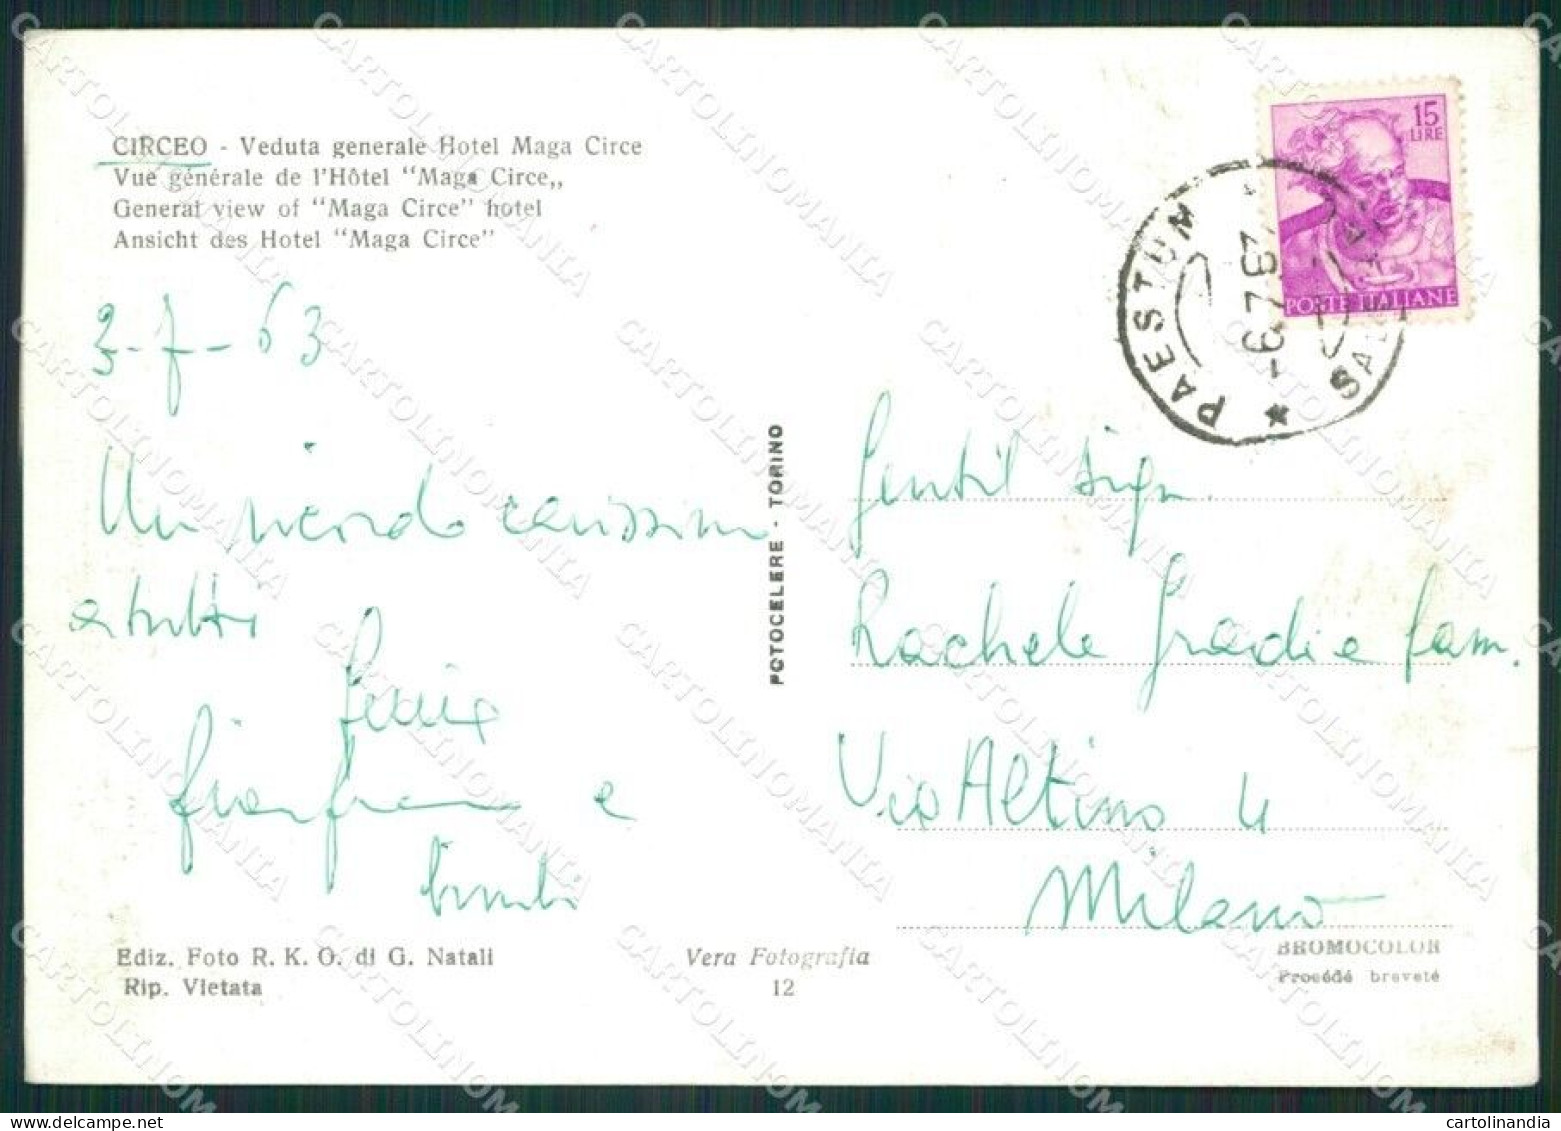 CIRCEO - Veduta generale Hotel Maga Circe
Vue générale de l'Hôtel "Maga Circe,,
General view of "Maga Circe" hotel
Ansicht des Hotel "Maga Circe"
15
LIRE
POSTE ITALIANE
PAESTUM
3-7-63
Un ricordo carissimo
a tutti
Gianfranco e
bimbi
FOTOCELERE - TORINO
Gentil Sign.
Rachele Gradi e fam.
Via Altino 4
Milano
Ediz. Foto R. K. O. di G. Natali
Rip. Vietata
Vera Fotografia
12
BROMOCOLOR
Procédé breveté
CARTOLINOMANIA
cartolinandia